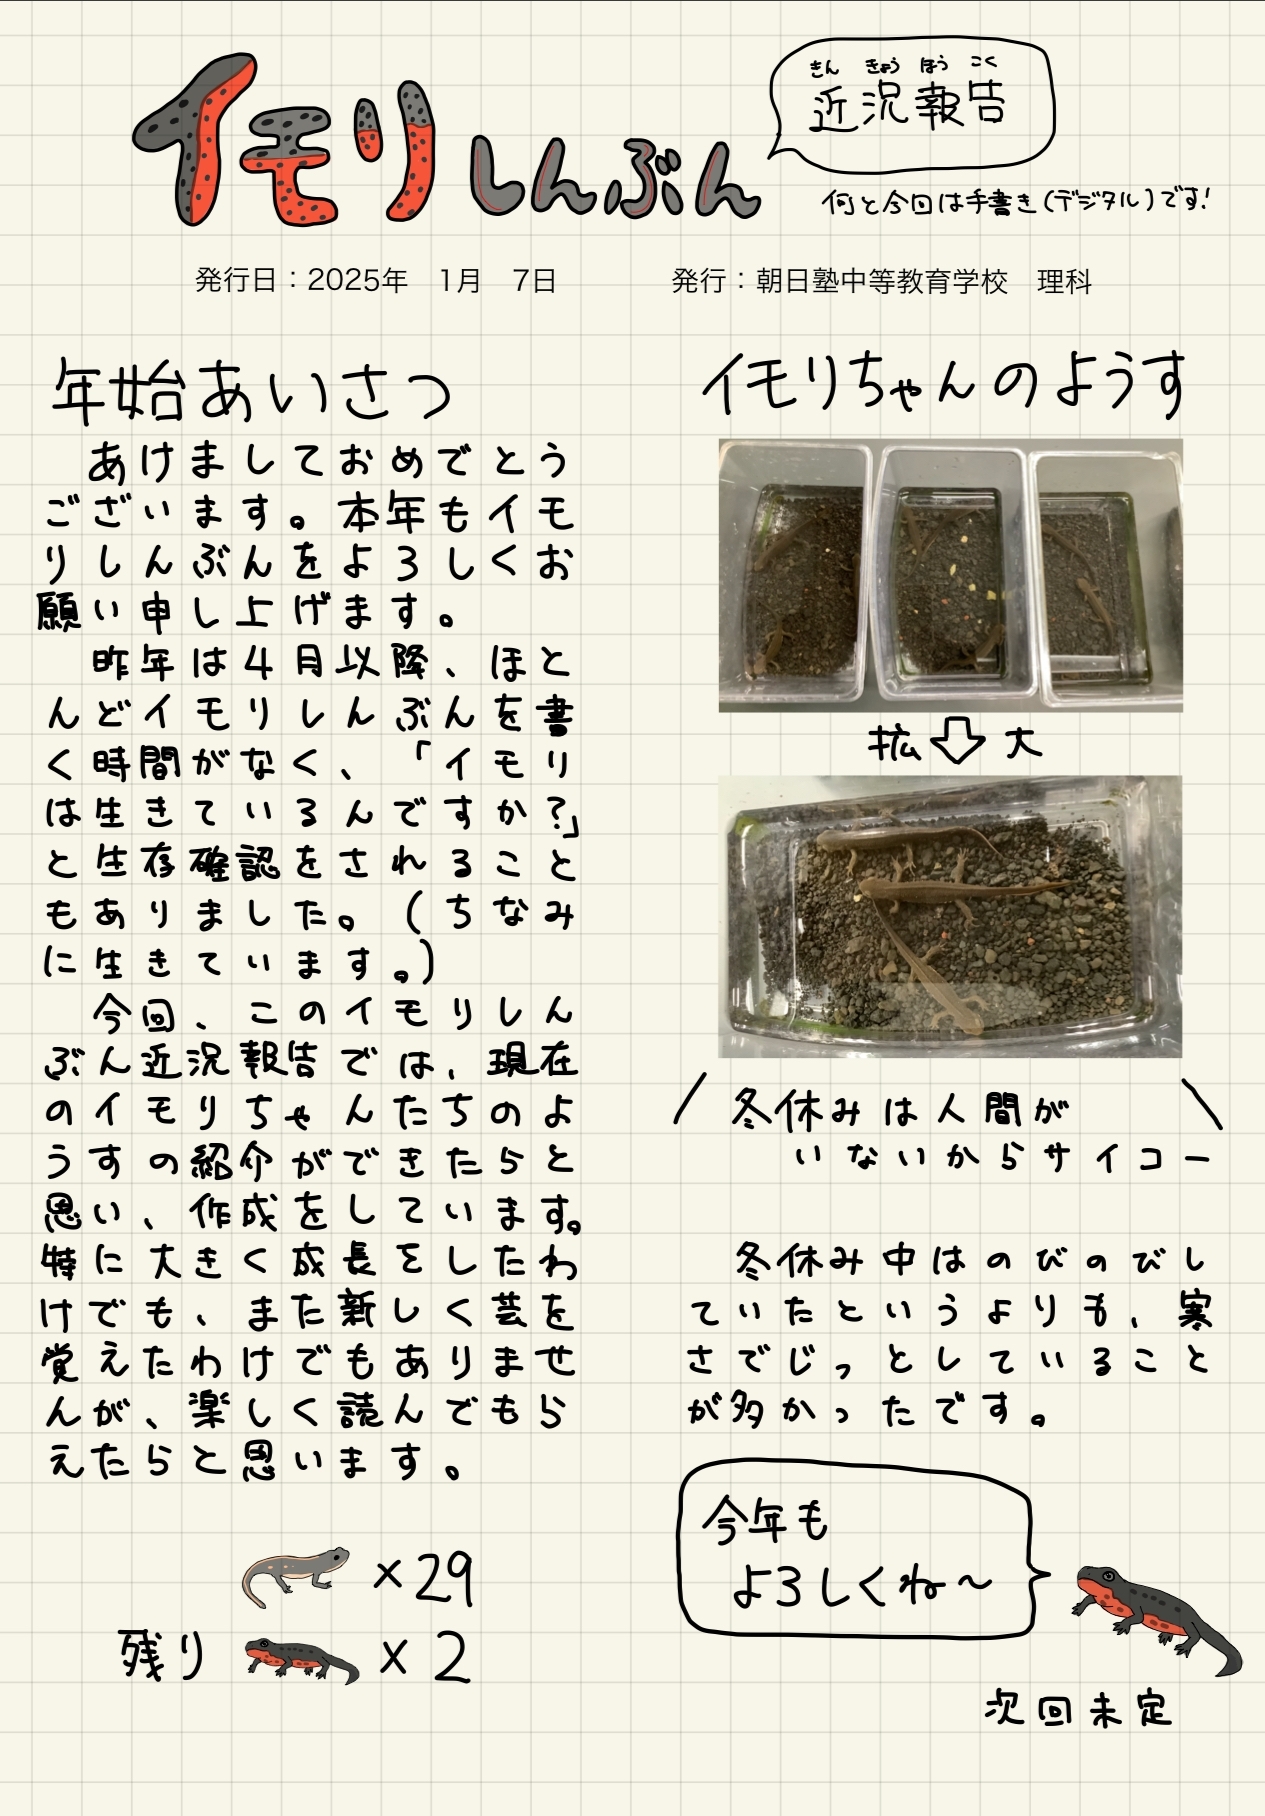 イモリしんぶん
きん きょう ほう こく
近況報告
何と今回は手書き(デジタル)です!
発行日：2025年　1月　7日
発行：朝日塾中等教育学校　理科
年始あいさつ
あけましておめでとう
ございます。本年もイモ
リしんぶんをよろしくお
願い申し上げます。
昨年は4月以降、ほと
んどイモリしんぶんを書
く時間がなく、「イモリ
は生きているんですか?」
と生存確認をされること
もありました。(ちなみ
に生きています。)
今回、このイモリしん
ぶん近況報告では、現在
のイモリちゃんたちのよ
うすの紹介ができたらと
思い、作成をしています。
特に大きく成長をしたわ
けでも、また新しく芸を
覚えたわけでもありませ
んが、楽しく読んでもら
えたらと思います。
×29
残り ×2
イモリちゃんのようす
拡 大
冬休みは人間が
いないからサイコー
冬休み中はのびのびし
ていたというよりも、寒
さでじっとしていること
が多かったです。
今年も
よろしくね〜
次回未定